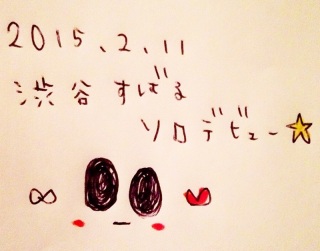 2015.2.11
渋谷すばる
ソロデビュー☆
∞